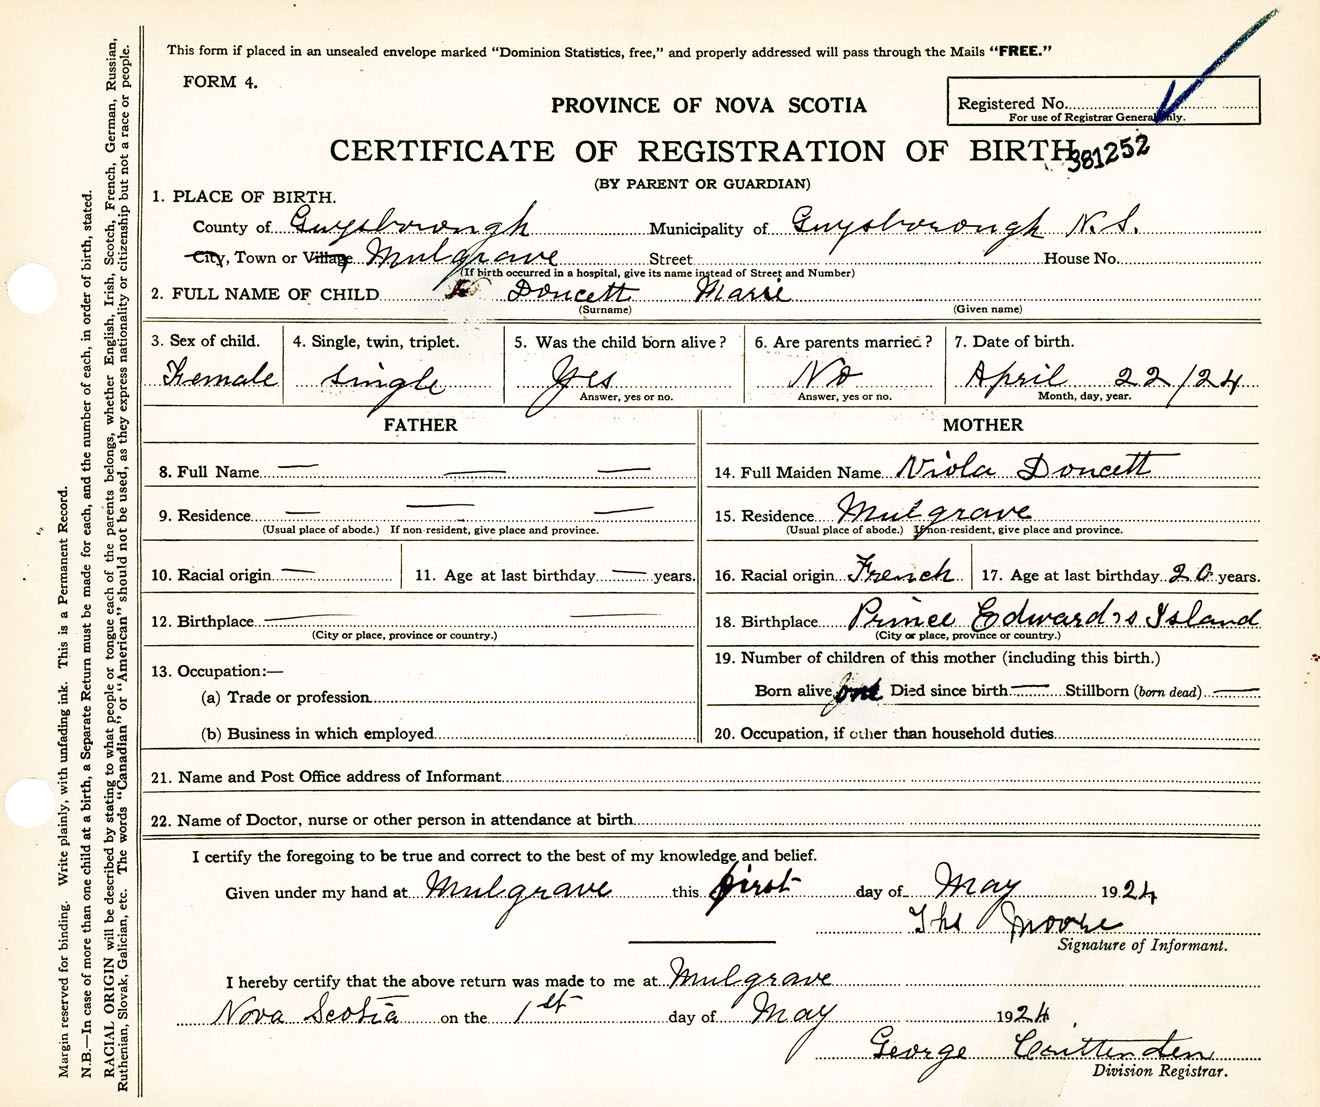 This form if placed in an unsealed envelope marked “Dominion Statistics, free,” and properly addressed will pass through the Mails “FREE.”
FORM 4.
PROVINCE OF NOVA SCOTIA
Registered No.
For use of Registrar General only.
CERTIFICATE OF REGISTRATION OF BIRTH
381252
(BY PARENT OR GUARDIAN)
1. PLACE OF BIRTH.
County of Guysborough Municipality of Guysborough N.S.
City, Town or Village Mulgrave Street House No.
(If birth occurred in a hospital, give its name instead of Street and Number)
2. FULL NAME OF CHILD Doucett Marie
(Surname) (Given name)
3. Sex of child. 4. Single, twin, triplet. 5. Was the child born alive? 6. Are parents married? 7. Date of birth.
Female single Yes No April 22/24
Answer, yes or no. Answer, yes or no. Month, day, year.
FATHER MOTHER
8. Full Name — — — 14. Full Maiden Name Viola Doucett
9. Residence — — — 15. Residence Mulgrave
(Usual place of abode.) If non-resident, give place and province. (Usual place of abode.) If non-resident, give place and province.
10. Racial origin — 11. Age at last birthday — years. 16. Racial origin French 17. Age at last birthday 20 years.
12. Birthplace — — 18. Birthplace Prince Edwards Island
(City or place, province or country.) (City or place, province or country.)
13. Occupation:— 19. Number of children of this mother (including this birth.)
(a) Trade or profession Born alive one Died since birth — Stillborn (born dead) —
(b) Business in which employed 20. Occupation, if other than household duties
21. Name and Post Office address of Informant
22. Name of Doctor, nurse or other person in attendance at birth
I certify the foregoing to be true and correct to the best of my knowledge and belief.
Given under my hand at Mulgrave this first day of May 1924
Ths Moore
Signature of Informant.
I hereby certify that the above return was made to me at Mulgrave
Nova Scotia on the 1st day of May 1924
George Crittenden
Division Registrar.
Margin reserved for binding. Write plainly, with unfading ink. This is a Permanent Record.
N.B.—In case of more than one child at a birth, a Separate Return must be made for each, and the number of each, in order of birth, stated.
RACIAL ORIGIN will be described by stating to what people or tongue each of the parents belongs, whether English, Irish, Scotch, French, German, Russian,
Ruthenian, Slovak, Galician, etc. The words “Canadian” or “American” should not be used, as they express nationality or citizenship but not a race or people.